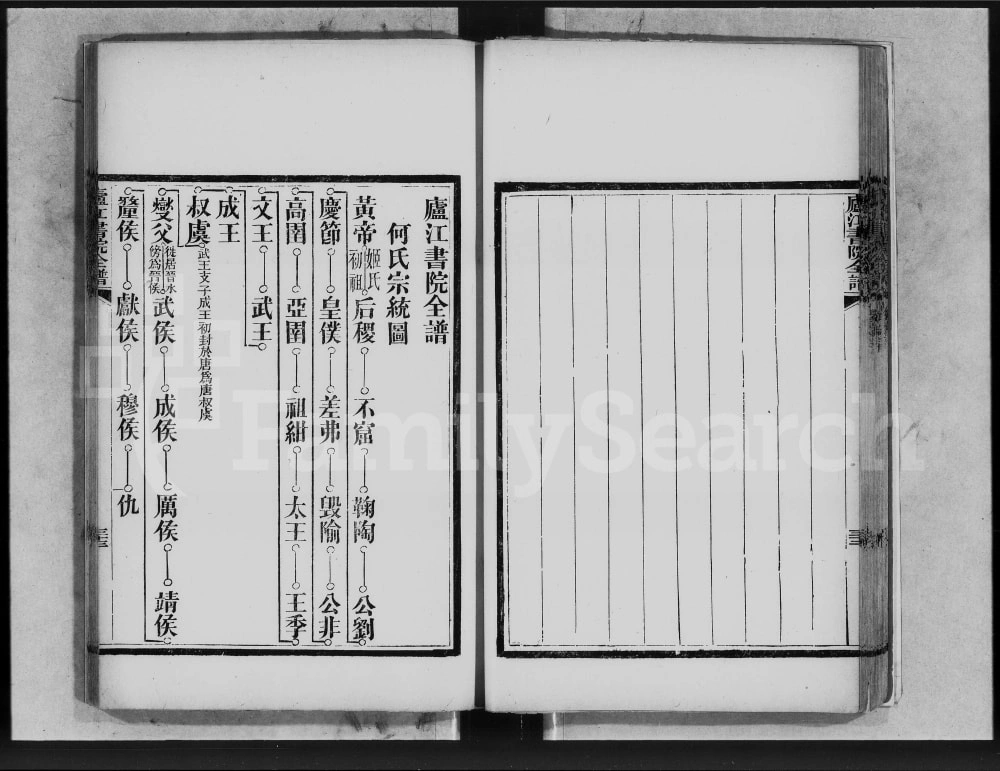 廬江書院全譜
廬江書院全譜
何氏宗統圖
黃帝 姬氏初祖 后稷 不窋 鞠陶 公劉
慶節 皇僕 差弗 毀隃 公非
高圉 亞圉 祖紺 太王 王季
文王 武王
成王
叔虞 武王支子成王初封於唐爲唐叔虞
燮父 徙居晉水傍爲晉侯 武侯 成侯 厲侯 靖侯
釐侯 獻侯 穆侯 仇
廬江書院全譜
FamilySearch